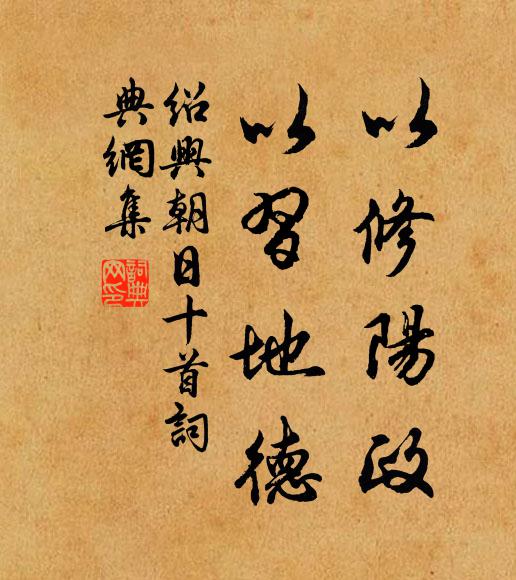 以修陽政
以習地德
紹興朝日十首詞
典網集
詞典
网印